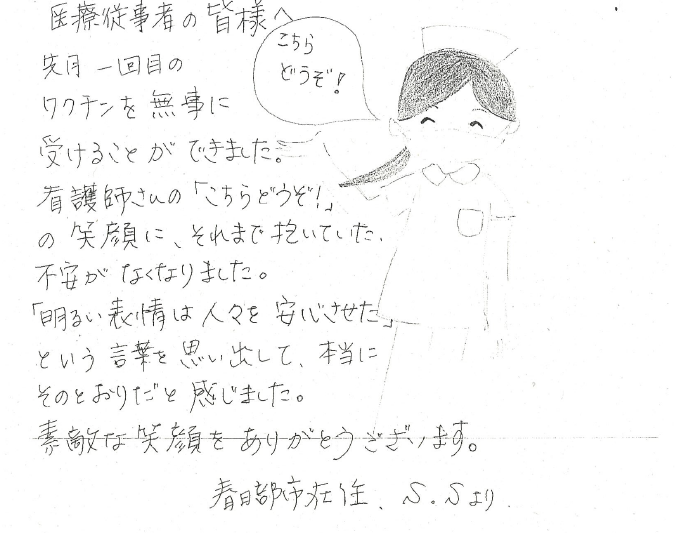 医療従事者の皆様へ
こちら
どうぞ!
先月一回目の
ワクチンを無事に
受けることができました。
看護師さんの「こちらどうぞ!」
の笑顔に、それまで抱いていた、
不安がなくなりました。
「明るい表情は人々を安心させた」
という言葉を思い出して、本当に
そのとおりだと感じました。
素敵な笑顔をありがとうございます。
春日部市在住、S.Sより